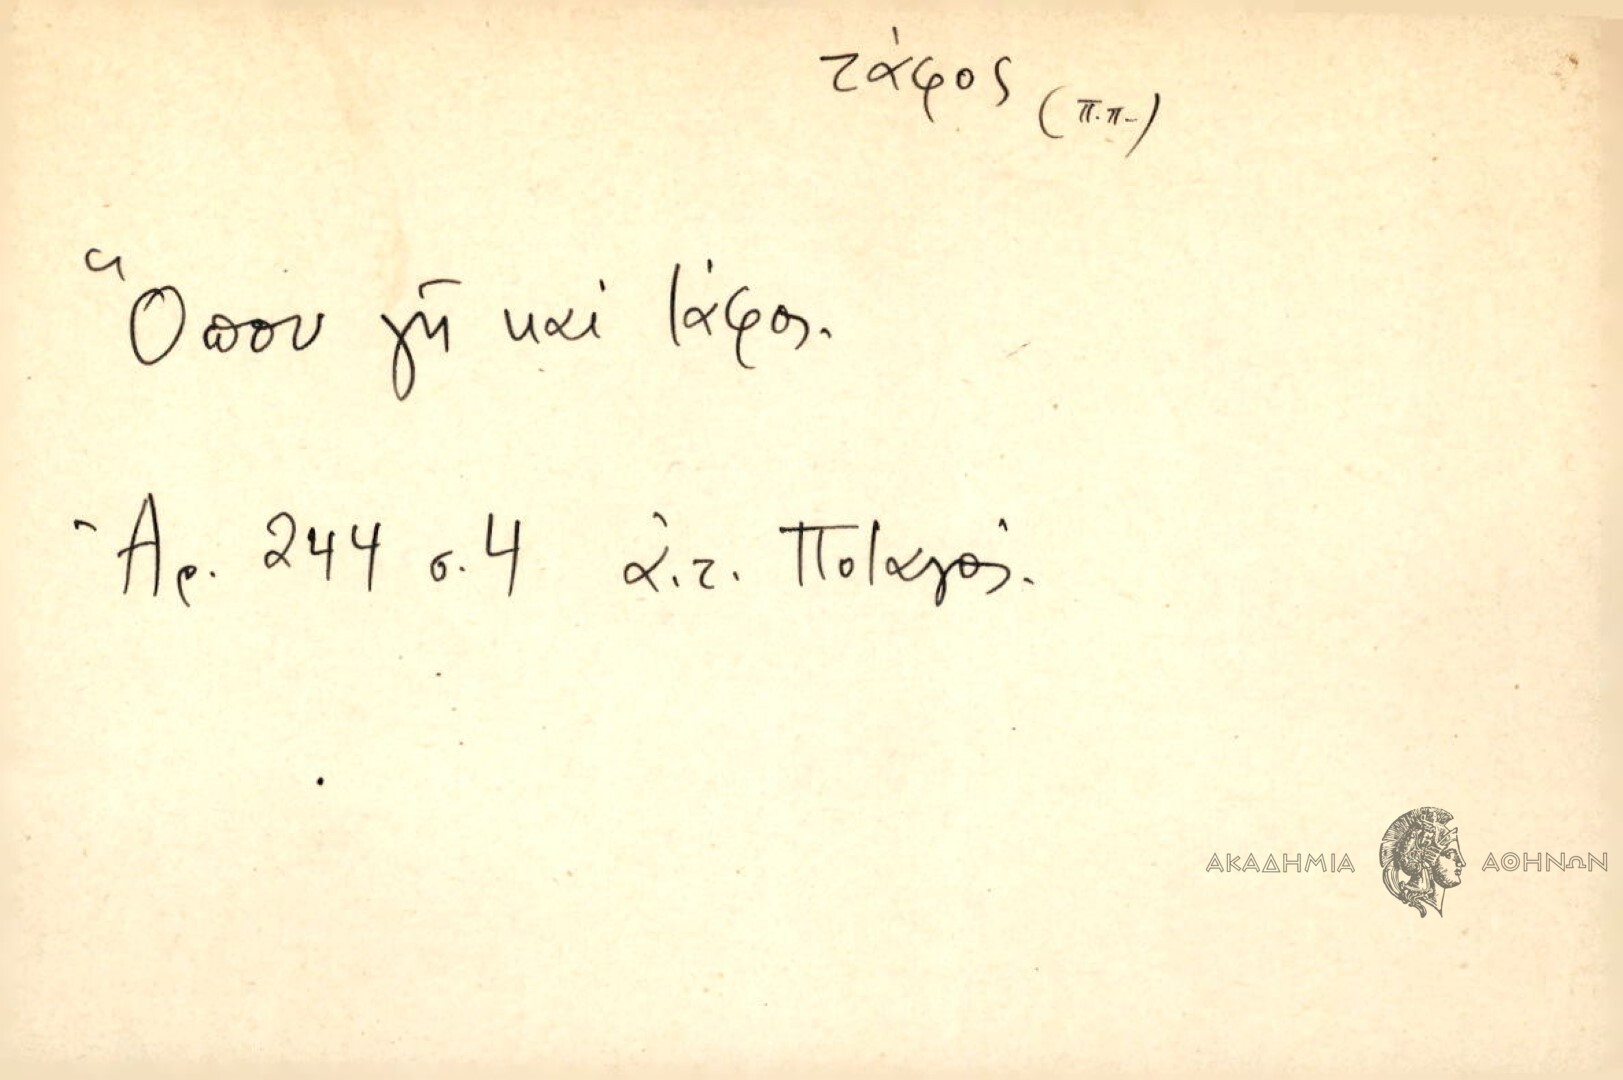 τάφος (π.π.)
Ὅπου γῆ καὶ τάφος.
Ἀρ. 244 σ. 4 ἀ.τ. Ποταγός.
ΑΚΑΔΗΜΙΑ ΑΘΗΝΩΝ